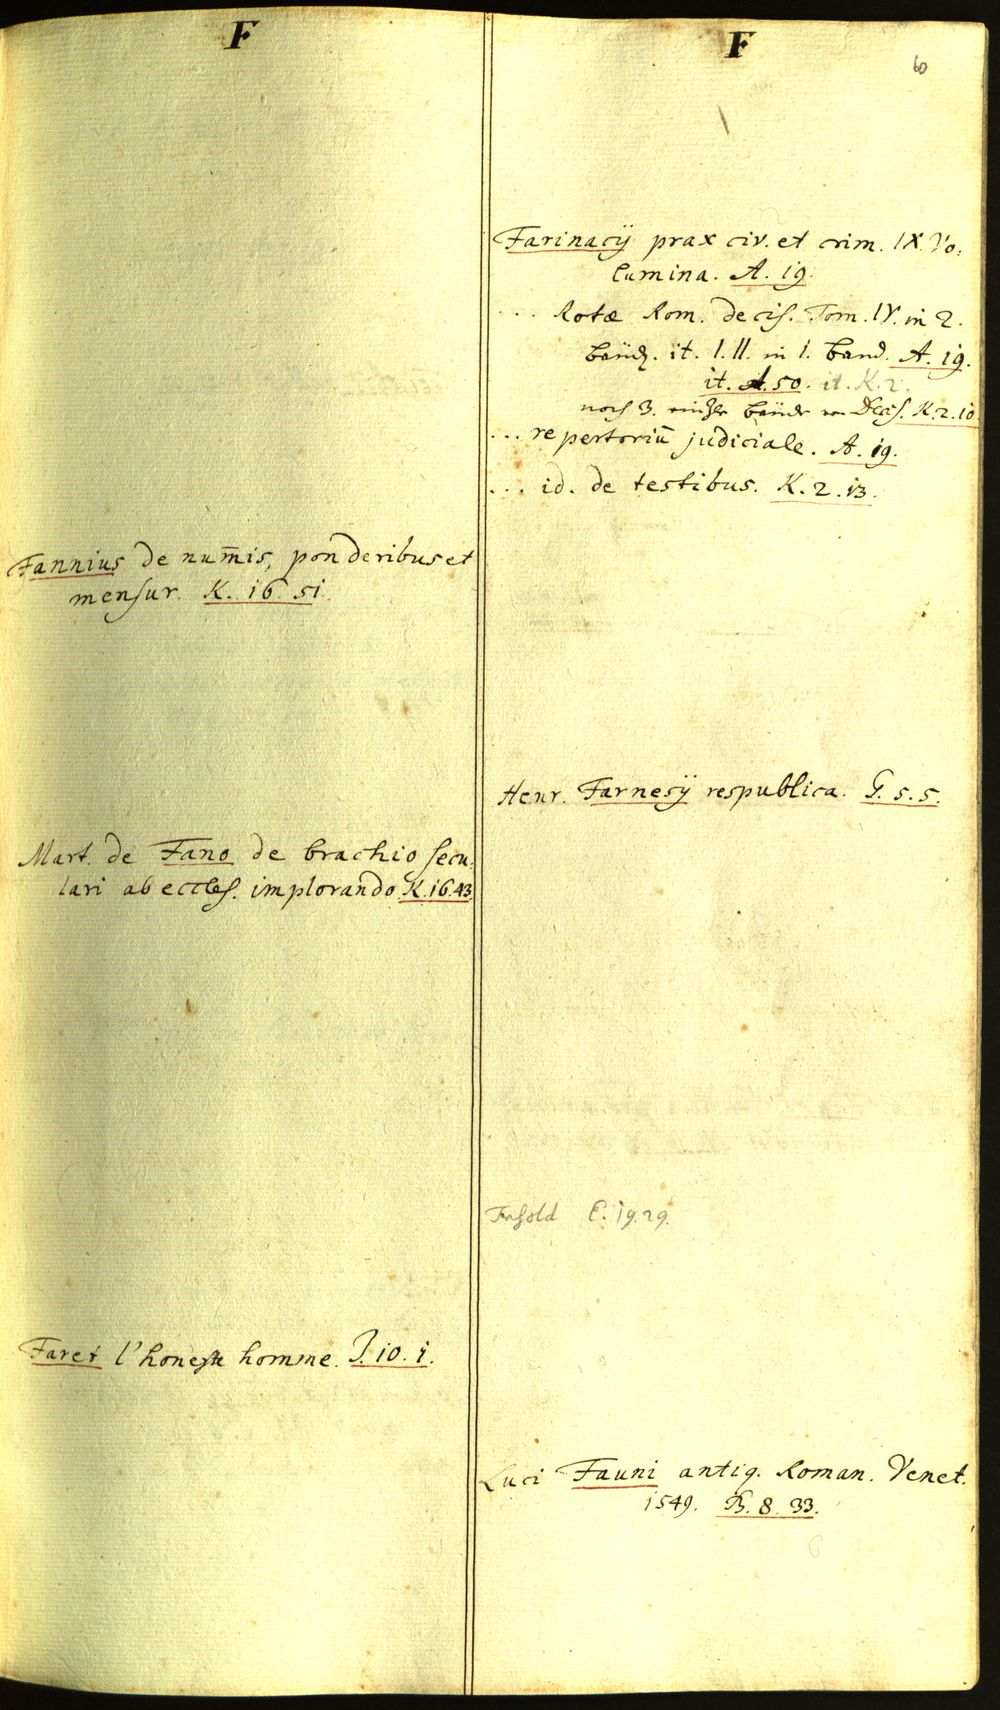 F
Fannius de num̄is, ponderibus et
mensur. K. 16 51.
Mart. de Fano de brachio secu-
lari ab eccles. implorando. K. 16. 43.
Faret l'honeste homme. J. 10. 1.
F
60
Farinacij prax civ. et crim. IX. Vo-
lumina. A. 19.
... Rotæ Rom. decis. Tom. IV. in 2.
bänd. it. I. II. in 1. band. A. 19.
it. A. 50. it. K. 2.
noch 3. bände Decis. K. 2. 10
... repertoriū judiciale. A. 19.
... id. de testibus. K. 2. 13.
Henr. Farnesij respublica. G. 5. 5.
Fasold C. 19. 29.
Luci Fauni antiq. Roman. Venet.
1549. B. 8. 33.